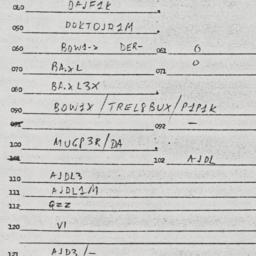 040 DAJF1K
050 DOKTOJD1M
060 BOW1-> DER- 061 0
070 BA.XL 071 0
080 BA.XL3X
090 BOW1X/TREL8BUX/P1P1K
091 092 -
100 MUGP3R/DA
101 102 AJDL
110 AJDL3
111 AJDL1/M
112 GZZ
120 VI
121 AJD3/-